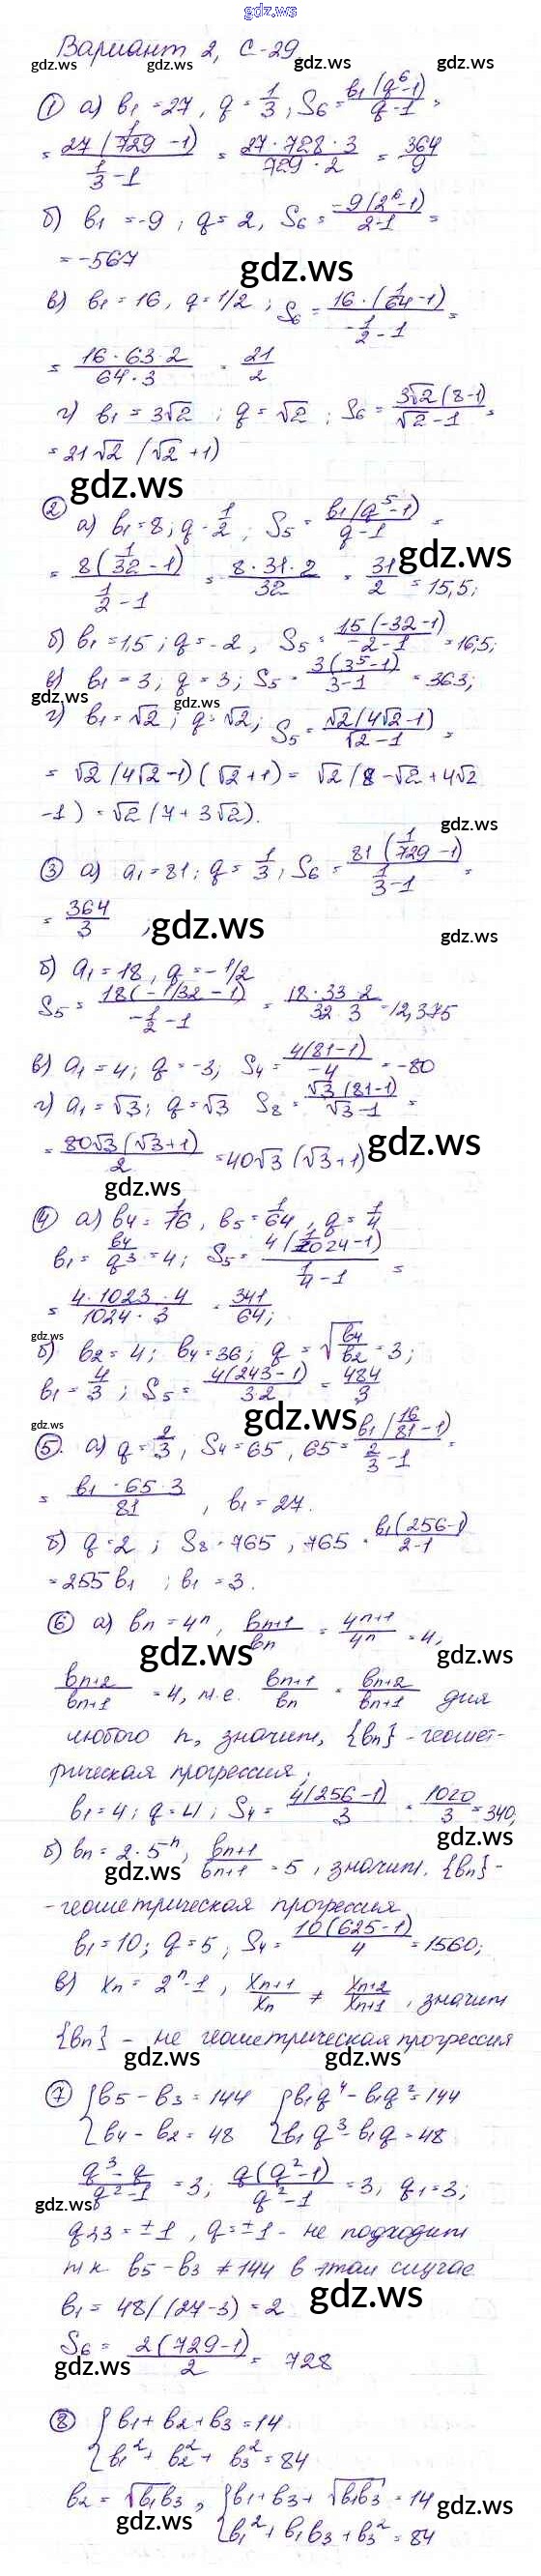 gdz.ws
Вариант 2, С-29
gdz.ws gdz.ws gdz.ws
① а) b₁ = 27, q = 1/3; S₆ = b₁(q⁶-1)/(q-1) =
= 27(1/729 - 1)/(1/3 - 1) = 27·728·3/(729·2) = 364/9
б) b₁ = -9; q = 2, S₆ = -9(2⁶-1)/(2-1) =
= -567
gdz.ws
в) b₁ = 16, q = 1/2; S₆ = 16·(1/64 - 1)/(-1/2 - 1) =
= 16·63·2/(64·3) = 21/2
г) b₁ = 3√2; q = √2; S₆ = 3√2(8-1)/(√2-1) =
= 21√2 (√2+1)
gdz.ws
② а) b₁ = 8; q = 1/2; S₅ = b₁(q⁵-1)/(q-1) =
gdz.ws
= 8(1/32 - 1)/(1/2 - 1) = 8·31·2/32 = 31/2 = 15,5;
б) b₁ = 1,5; q = -2, S₅ = 1,5(-32-1)/(-2-1) = 16,5;
в) b₁ = 3; q = 3; S₅ = 3(3⁵-1)/(3-1) = 363;
gdz.ws gdz.ws
г) b₁ = √2; q = √2; S₅ = √2(4√2-1)/(√2-1) =
= √2(4√2-1)(√2+1) = √2(8-√2+4√2
-1) = √2(7+3√2).
gdz.ws
③ а) a₁ = 81; q = 1/3, S₆ = 81(1/729 - 1)/(1/3 - 1) =
= 364/3;
gdz.ws gdz.ws
б) a₁ = 18, q = -1/2
S₅ = 18(-1/32 - 1)/(-1/2 - 1) = 18·33·2/(32·3) = 12,375
в) a₁ = 4; q = -3; S₄ = 4(81-1)/(-4) = -80
г) a₁ = √3; q = √3 S₈ = √3(81-1)/(√3-1) =
= 80√3(√3+1)/2 = 40√3(√3+1)
gdz.ws
gdz.ws
④ а) b₄ = 1/16, b₅ = 1/64, q = 1/4
b₁ = b₄/q³ = 4; S₅ = 4(1/1024 - 1)/(1/4 - 1) =
= 4·1023·4/(1024·3) = 341/64;
gdz.ws
б) b₂ = 4; b₄ = 36; q = √(b₄/b₂) = 3;
b₁ = 4/3; S₅ = 4(243-1)/(3·2) = 484/3
gdz.ws gdz.ws
⑤. а) q = 2/3, S₄ = 65, 65 = b₁(16/81 - 1)/(2/3 - 1) =
= b₁·65·3/81, b₁ = 27.
б) q = 2; S₈ = 765, 765 = b₁(256-1)/(2-1)
= 255b₁; b₁ = 3.
⑥ а) bn = 4ⁿ, bn+1/bn = 4ⁿ⁺¹/4ⁿ = 4,
gdz.ws gdz.ws
bn+2/bn+1 = 4, т.е. bn+1/bn = bn+2/bn+1 для
любого n, значит, {bn} - геомет-
рическая прогрессия;
b₁ = 4; q = 4; S₄ = 4(256-1)/3 = 1020/3 = 340;
gdz.ws
б) bn = 2·5ⁿ, bn+1/bn+1 = 5, значит. {bn} -
gdz.ws
- геометрическая прогрессия
b₁ = 10; q = 5; S₄ = 10(625-1)/4 = 1560;
в) xn = 2ⁿ-1, xn+1/xn ≠ xn+2/xn+1, значит
{bn} - не геометрическая прогрессия
gdz.ws gdz.ws
⑦ {b₅ - b₃ = 144 {b₁q⁴ - b₁q² = 144
{b₄ - b₂ = 48 {b₁q³ - b₁q = 48
q³-q/q²-1 = 3; q(q²-1)/q²-1 = 3, q₁ = 3;
gdz.ws
q₂,₃ = ±1, q = ±1 - не подходит
т.к. b₅ - b₃ ≠ 144 в этом случае
gdz.ws
b₁ = 48/(27-3) = 2
S₆ = 2(729-1)/2 = 728
gdz.ws
⑧ {b₁ + b₂ + b₃ = 14
{b₁² + b₂² + b₃² = 84
b₂ = √b₁b₃, {b₁ + b₃ + √b₁b₃ = 14
gdz.ws gdz.ws
{b₁² + b₁b₃ + b₃² = 84